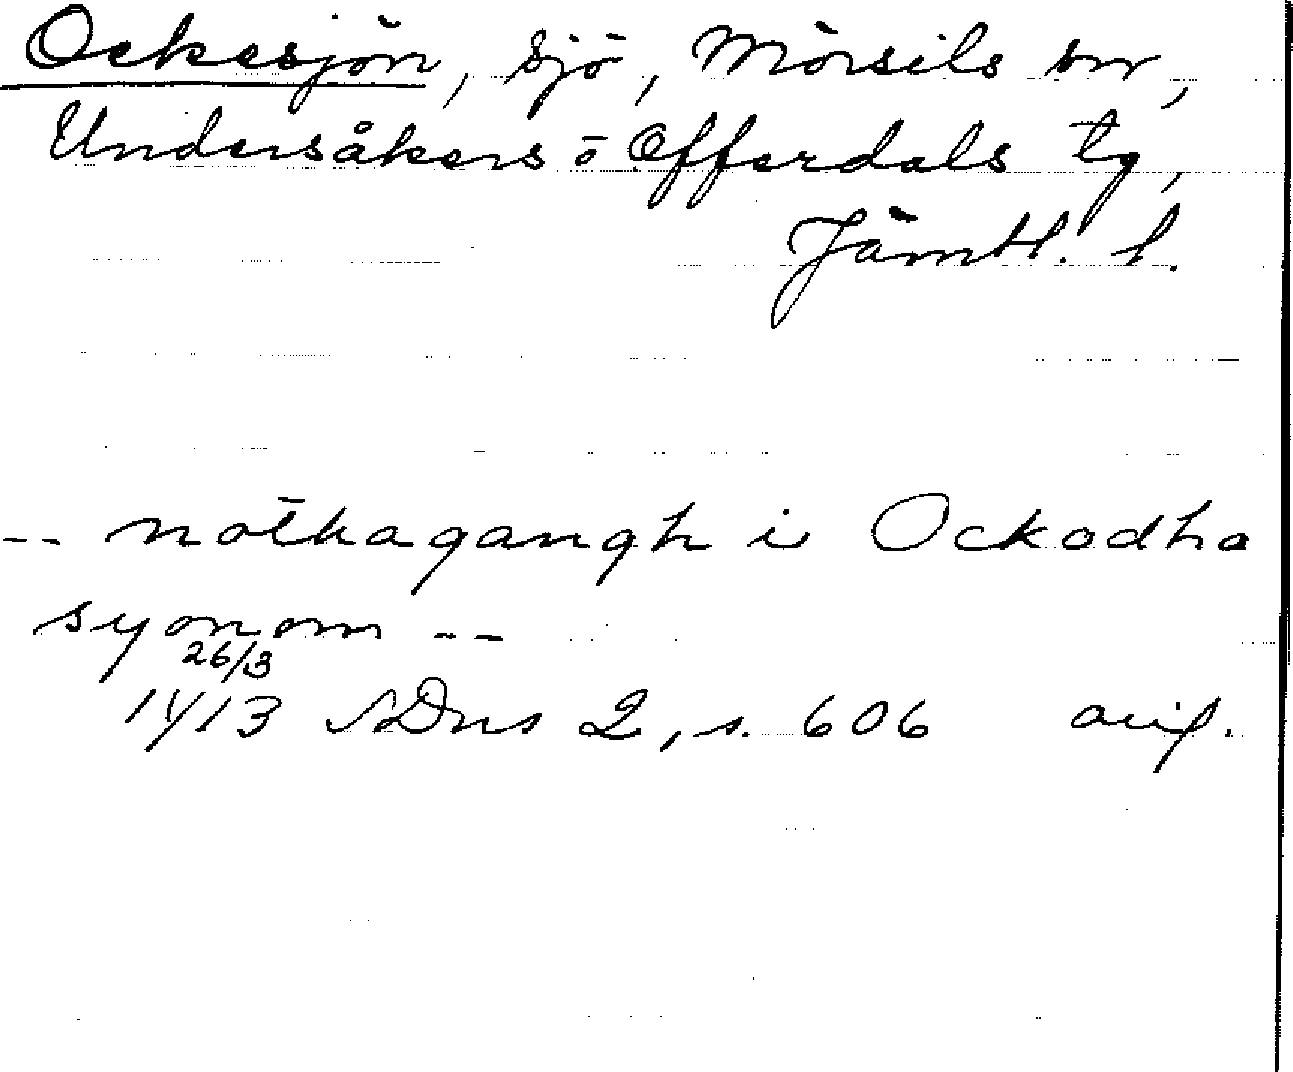 Ockesjön, sjö, Mörsils sn,
Undersåkers o Offerdals tg,
Jämtl. l.
-- nötkagangh i Ockadha
syonom --
26/3
1413 SDns 2, s. 606 avs.